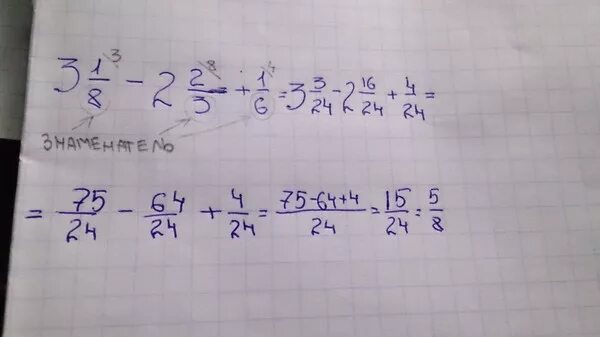 3 1/8 ³ - 2 2/3 ⁸ + 1/6 ⁴ = 3 3/24 - 2 16/24 + 4/24 =
ЗНАМЕНАТЕЛЬ
= 75/24 - 64/24 + 4/24 = 75-64+4/24 = 15/24 = 5/8